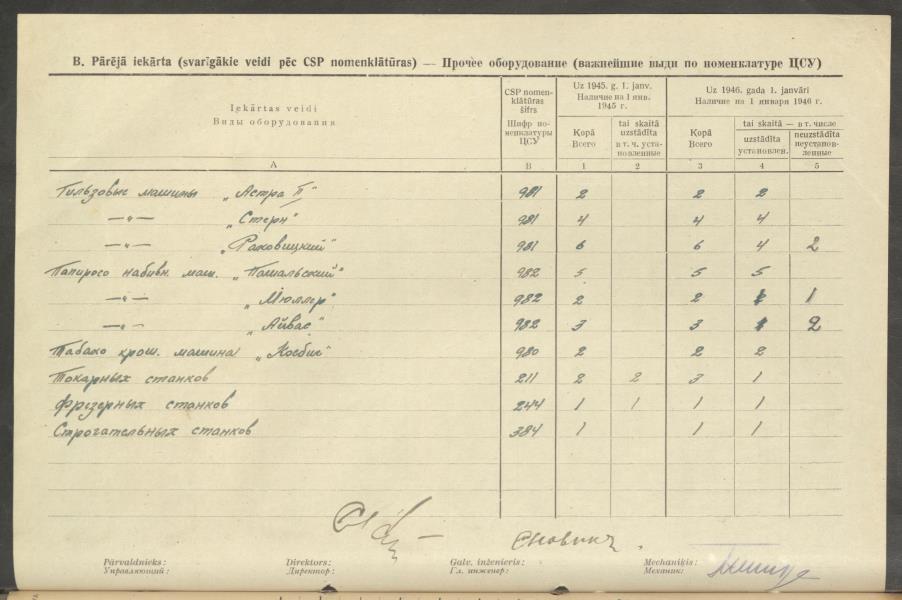 B. Pārējā iekārta (svarīgākie veidi pēc CSP nomenklātūras) — Прочее оборудование (важнейшие выды по номенклатуре ЦСУ)
Iekārtas veidi
Виды оборудования
CSP nomen-
klātūras
šifrs
Шифр но-
менклатуры
ЦСУ
Uz 1945. g. 1. janv.
Наличие на 1 янв.
1945 г.
Uz 1946. gada 1. janvāri
Наличие на 1 января 1946 г.
Kopā
Всего
tai skaitā
uzstādīta
в т. ч. уста-
новленные
Kopā
Всего
tai skaitā — в т. числе
uzstādīta
установлен.
neuzstādīta
неустанов-
ленные
A B 1 2 3 4 5
Гильзовые машины „Астра II" 981 2 2 2
—„— „Стерн" 981 4 4 4
—„— „Раковицкий" 981 6 6 4 2
Папиросо набивн. маш. 982 5 5 5
—„— „Мюллер" 982 2 2 1
—„— „Айвас" 982 3 3 2
Табако крош. машина 980 2 2 2
Токарных станков 211 2 2 3 1
Фрезерных станков 244 1 1 1 1
Строгательных станков 384 1 1 1
Pārvaldnieks:
Управляющий:
Direktors:
Директор:
Galv. inženieris:
Гл. инженер:
Mechaniķis:
Механик: